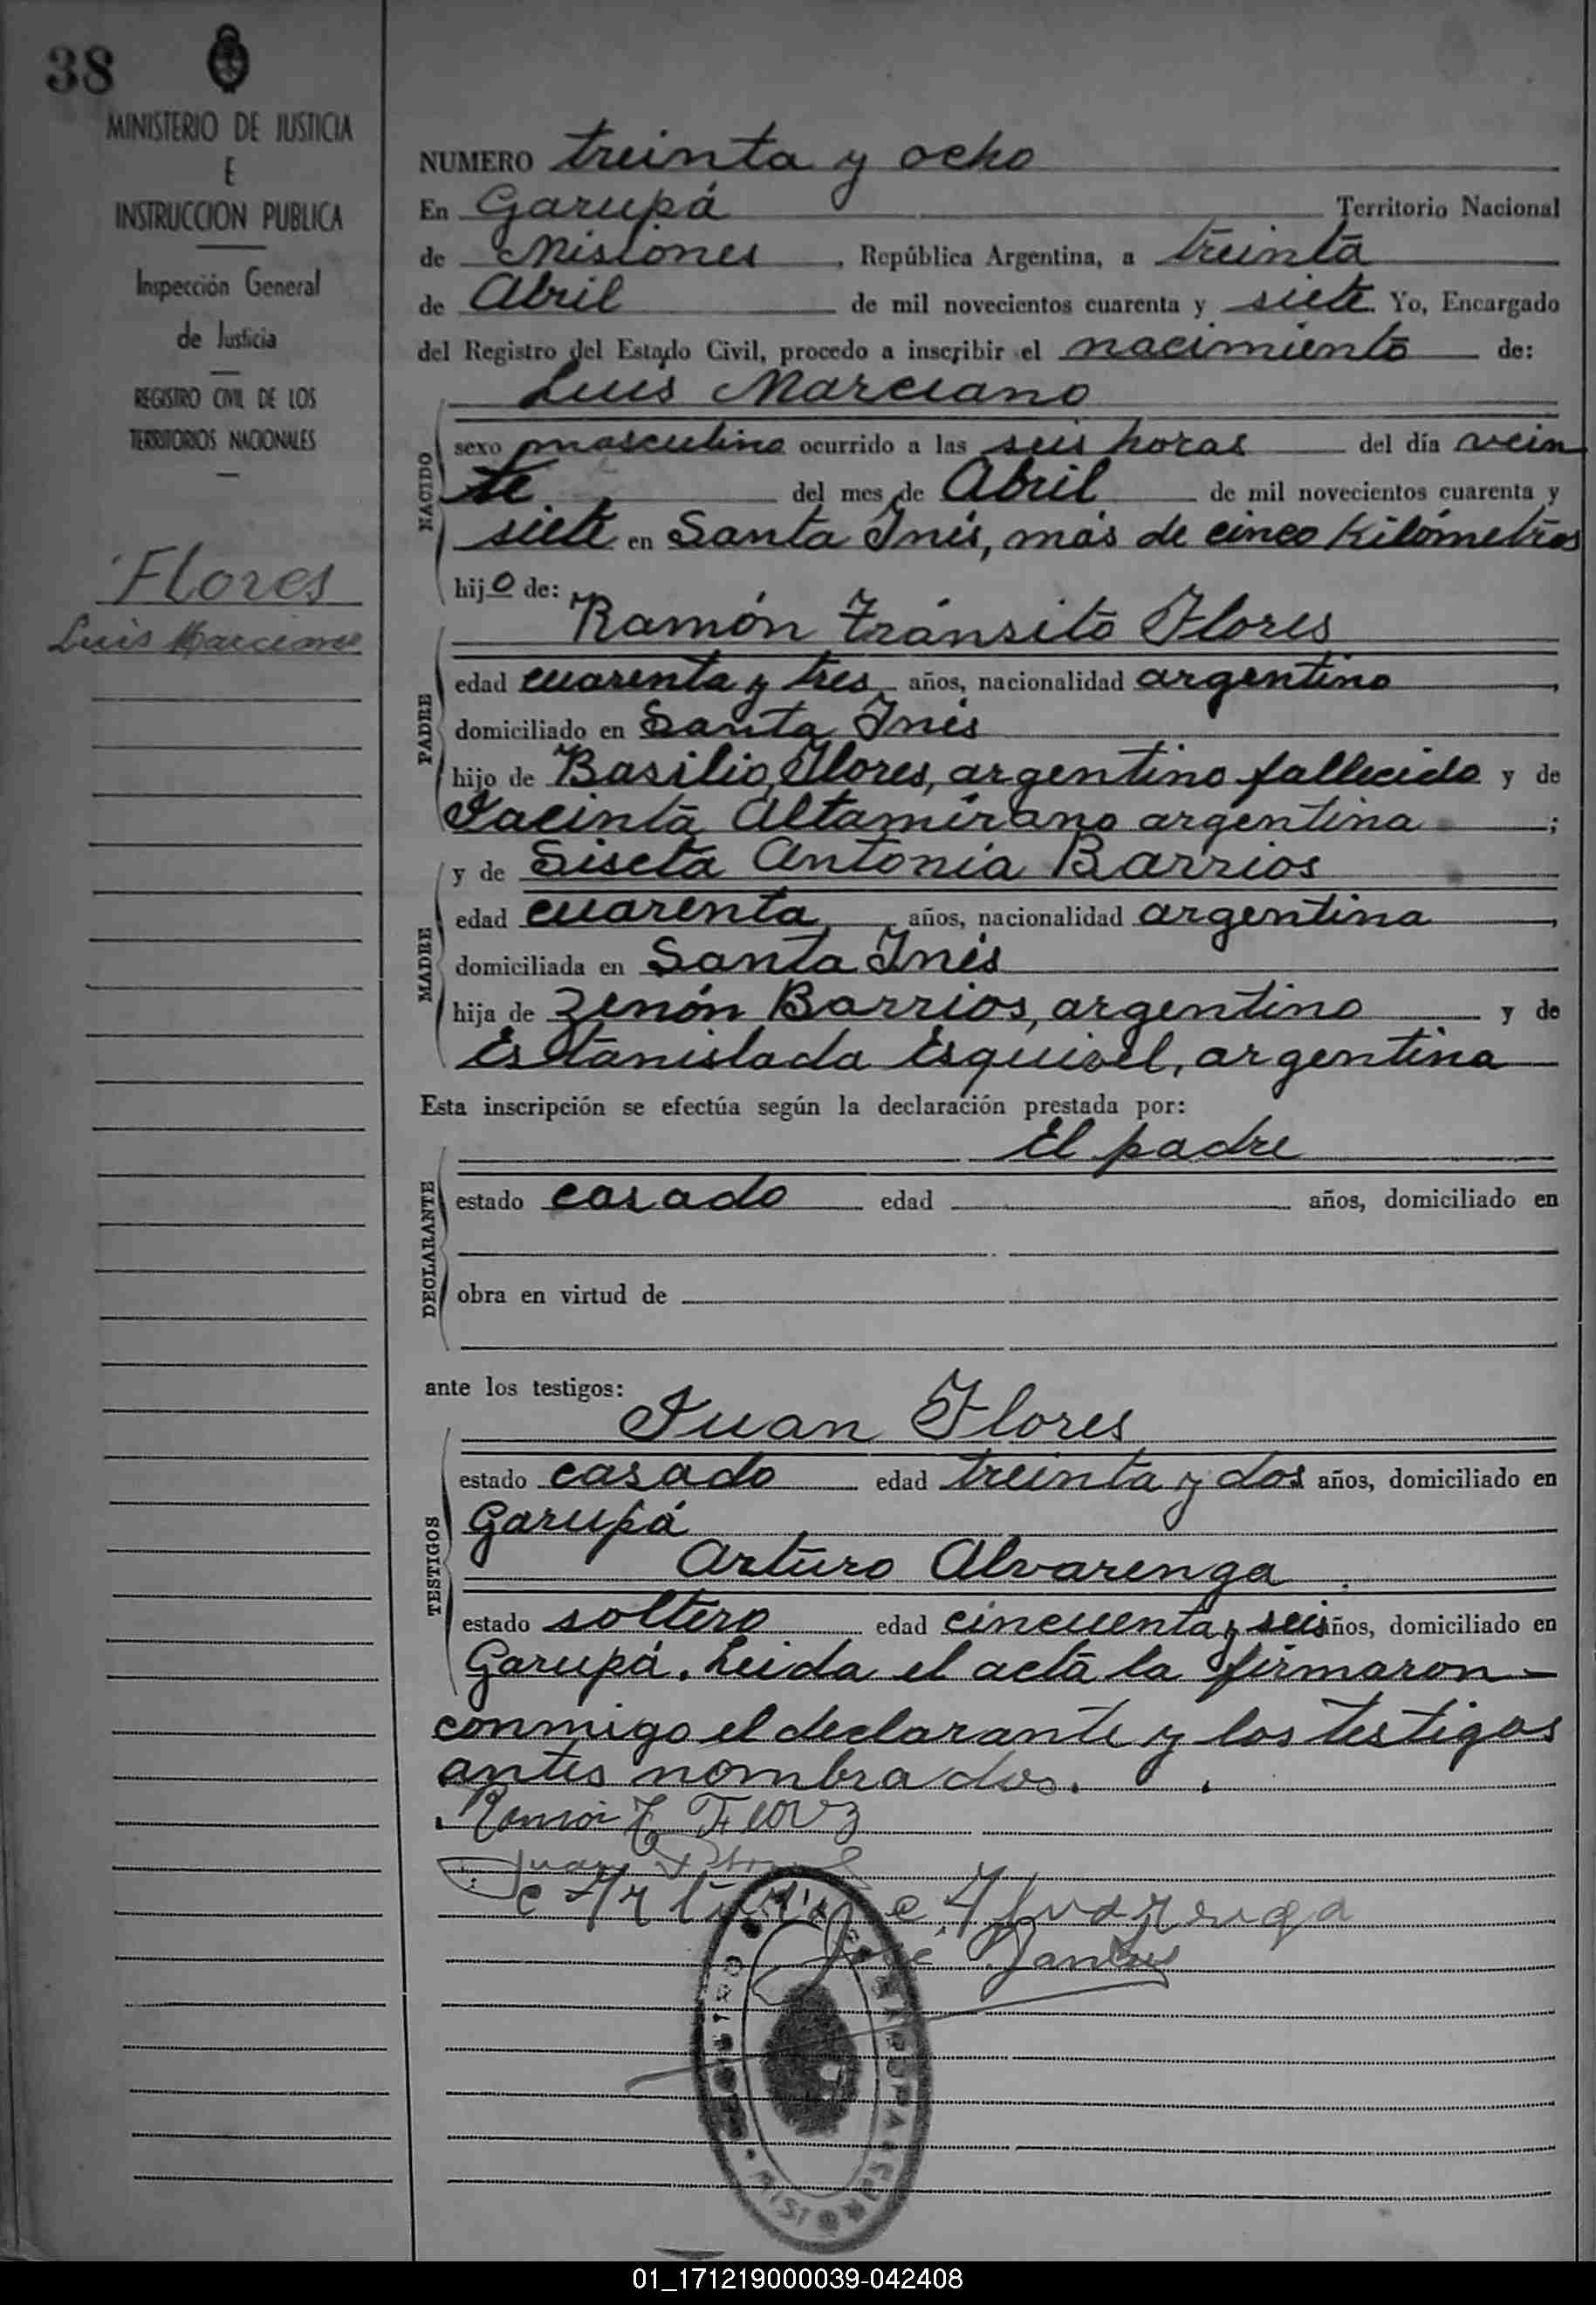 38
MINISTERIO DE JUSTICIA
E
INSTRUCCION PUBLICA
Inspección General
de Justicia
REGISTRO CIVIL DE LOS
TERRITORIOS NACIONALES
Flores
Luis Marciano
NUMERO treinta y ocho
En Garupá Territorio Nacional
de Misiones, República Argentina, a treinta
de Abril de mil novecientos cuarenta y siete. Yo, Encargado
del Registro del Estado Civil, procedo a inscribir el nacimiento de:
Luis Marciano
NACIDO
sexo masculino ocurrido a las seis horas del día vein
te del mes de Abril de mil novecientos cuarenta y
siete en Santa Inés, más de cinco Kilómetros
hijo de:
Ramón Tránsito Flores
PADRE
edad cuarenta y tres años, nacionalidad argentino,
domiciliado en Santa Inés
hijo de Basilio Flores, argentino fallecido y de
Jacinta Altamirano argentina;
y de Siseta Antonia Barrios
MADRE
edad cuarenta años, nacionalidad argentina,
domiciliada en Santa Inés
hija de Zenón Barrios, argentino y de
Estanislada Esquivel, argentina
Esta inscripción se efectúa según la declaración prestada por:
El padre
DECLARANTE
estado casado edad años, domiciliado en
obra en virtud de
ante los testigos:
Juan Flores
TESTIGOS
estado casado edad treinta y dos años, domiciliado en
Garupá
Arturo Alvarenga
estado soltero edad cincuenta y seis años, domiciliado en
Garupá. Leida el acta la firmaron
conmigo el declarante y los testigos
antes nombrados.
Ramón T. Flores
Juan
Arturo Alvarenga
José
GARUPA
01_171219000039-042408